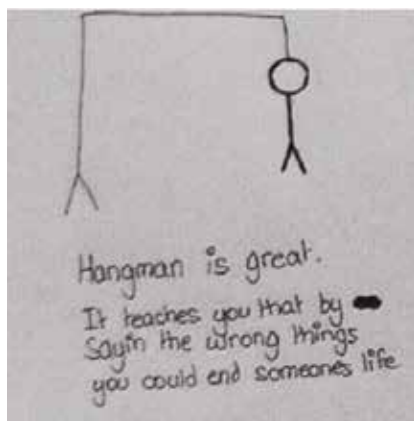 Hangman is great.
It teaches you that by
Sayin the wrong things
you could end someone's life